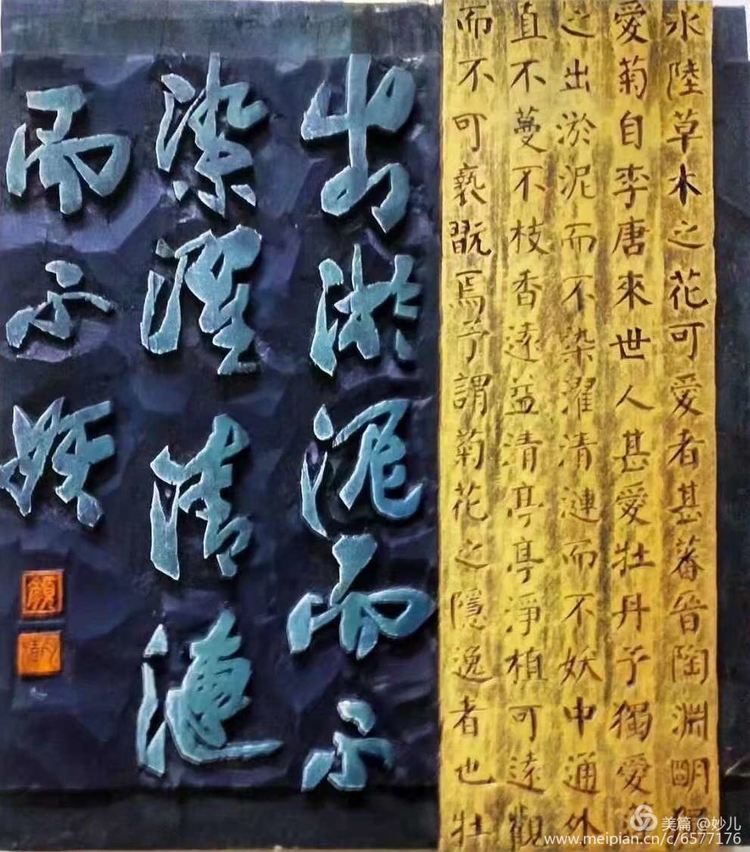 水陸草木之花可愛者甚蕃晋陶淵明
愛菊自李唐來世人甚愛牡丹予獨愛
之出淤泥而不染濯清漣而不妖中通外
直不蔓不枝香遠益清亭亭淨植可遠觀
而不可褻翫焉予謂菊花之隱逸者也牡
出淤泥而不
染濯清漣
而不妖
美篇 @妙儿
www.meipian.cn/c/6577176